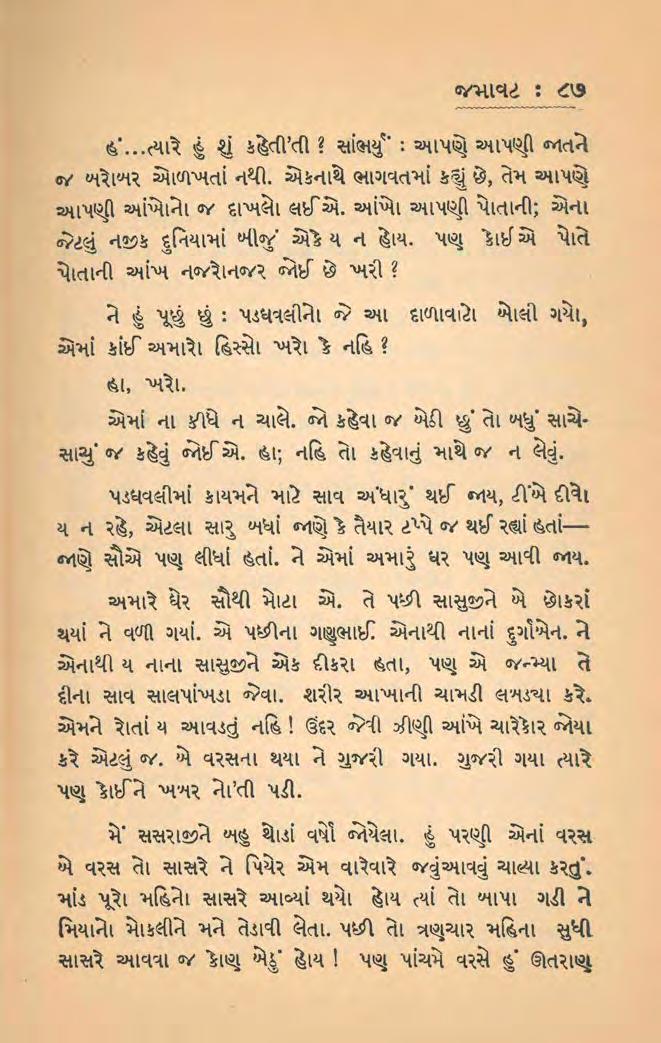 જમાવટ : ૮૭
હં...ત્યારે હું શું કહેતી'તી ? સાંભર્યું : આપણે આપણી જાતને
જ બરોબર ઓળખતાં નથી. એકનાથે ભાગવતમાં કહ્યું છે, તેમ આપણે
આપણી આંખોનો જ દાખલો લઈએ. આંખો આપણી પોતાની; એના
જેટલું નજીક દુનિયામાં બીજું એકે ય ન હોય. પણ કોઈએ પોતે
પોતાની આંખ નજરોનજર જોઈ છે ખરી ?
ને હું પૂછું છું : પડઘવલીનો જે આ દાળાવાટો બોલી ગયો,
એમાં કાંઈ અમારો હિસ્સો ખરો કે નહિ ?
હા, ખરો.
એમાં ના કીધે ન ચાલે. જો કહેવા જ બેઠી છું તો બધું સાચે-
સાચું જ કહેવું જોઈએ. હા; નહિ તો કહેવાનું માથે જ ન લેવું.
પડઘવલીમાં કાયમને માટે સાવ અંધારું થઈ જાય, ટીંબે દીવો
ય ન રહે, એટલા સારુ બધાં જાણે કે તૈયાર ટપ્પે જ થઈ રહ્યાં હતાં—
જાણે સૌએ પણ લીધાં હતાં. ને એમાં અમારું ઘર પણ આવી જાય.
અમારે ઘેર સૌથી મોટા એ. તે પછી સાસુજીને બે છોકરાં
થયાં ને વળી ગયાં. એ પછીના ગણુભાઈ. એનાથી નાનાં દુર્ગાબેન. ને
એનાથી ય નાના સાસુજીને એક દીકરા હતા, પણ એ જન્મ્યા તે
દીના સાવ સાલપાંખડા જેવા. શરીર આખાની ચામડી લબડ્યા કરે.
એમને રોતાં ય આવડતું નહિ ! ઉંદર જેવી ઝીણી આંખે ચારેકોર જોયા
કરે એટલું જ. બે વરસના થયા ને ગુજરી ગયા. ગુજરી ગયા ત્યારે
પણ કોઈને ખબર નો'તી પડી.
મેં સસરાજીને બહુ થોડાં વર્ષો જોયેલા. હું પરણી એનાં વરસ
બે વરસ તો સાસરે ને પિયેર એમ વારેવારે જવુંઆવવું ચાલ્યા કરતું.
માંડ પૂરો મહિનો સાસરે આવ્યાં થયો હોય ત્યાં તો બાપા ગડી ને
મિયાનો મોકલીને મને તેડાવી લેતા. પછી તો ત્રણચાર મહિના સુધી
સાસરે આવવા જ કોણ બેઠું હોય ! પણ પાંચમે વરસે હું ઊતરાણ